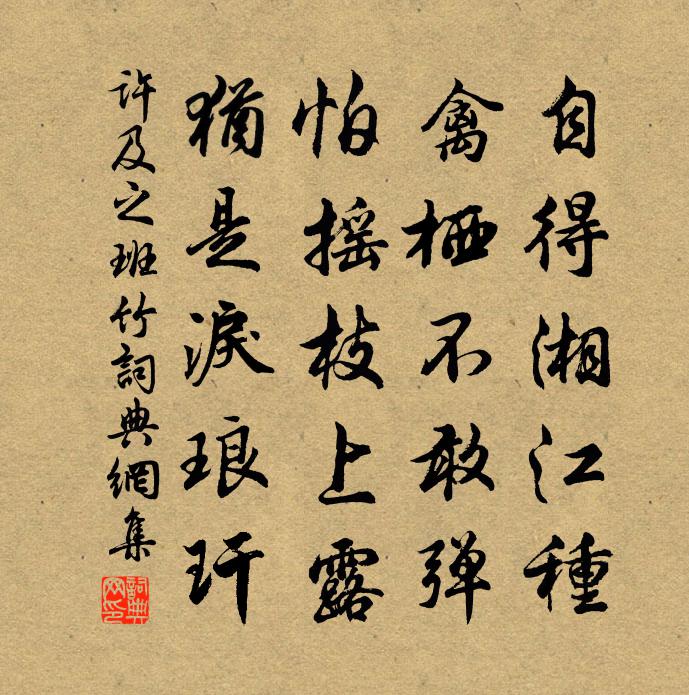 自得湘江種
禽栖不敢弹
怕摇枝上露
猶是淚琅玕
許及之班竹詞典網集
詞典网印